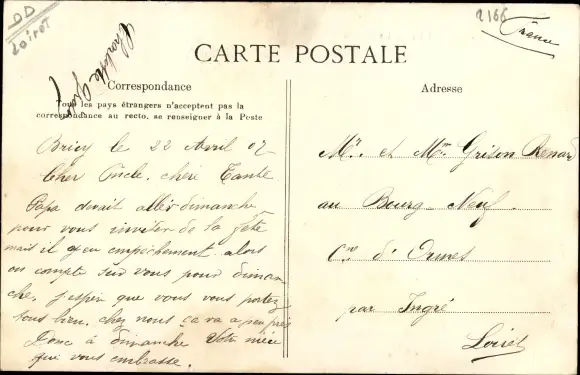 DD
Loiret
2166
France
CARTE POSTALE
Correspondance
Tous les pays étrangers n'acceptent pas la
correspondance au recto, se renseigner à la Poste
Bricy le 22 Avril 07
Cher Oncle, chère Tante
Papa devait aller dimanche
pour vous inviter de la fête
mais il y eu empêchement. alors
on compte sur vous pour diman
che, j'espère que vous vous portez
tous bien, chez nous ça va a peu près
Donc à dimanche Votre nièce
qui vous embrasse.
Charlotte
Adresse
Mr. et Mme Grison Renard
au Bourg-Neuf
Cne d'Ormes
par Ingré
Loiret